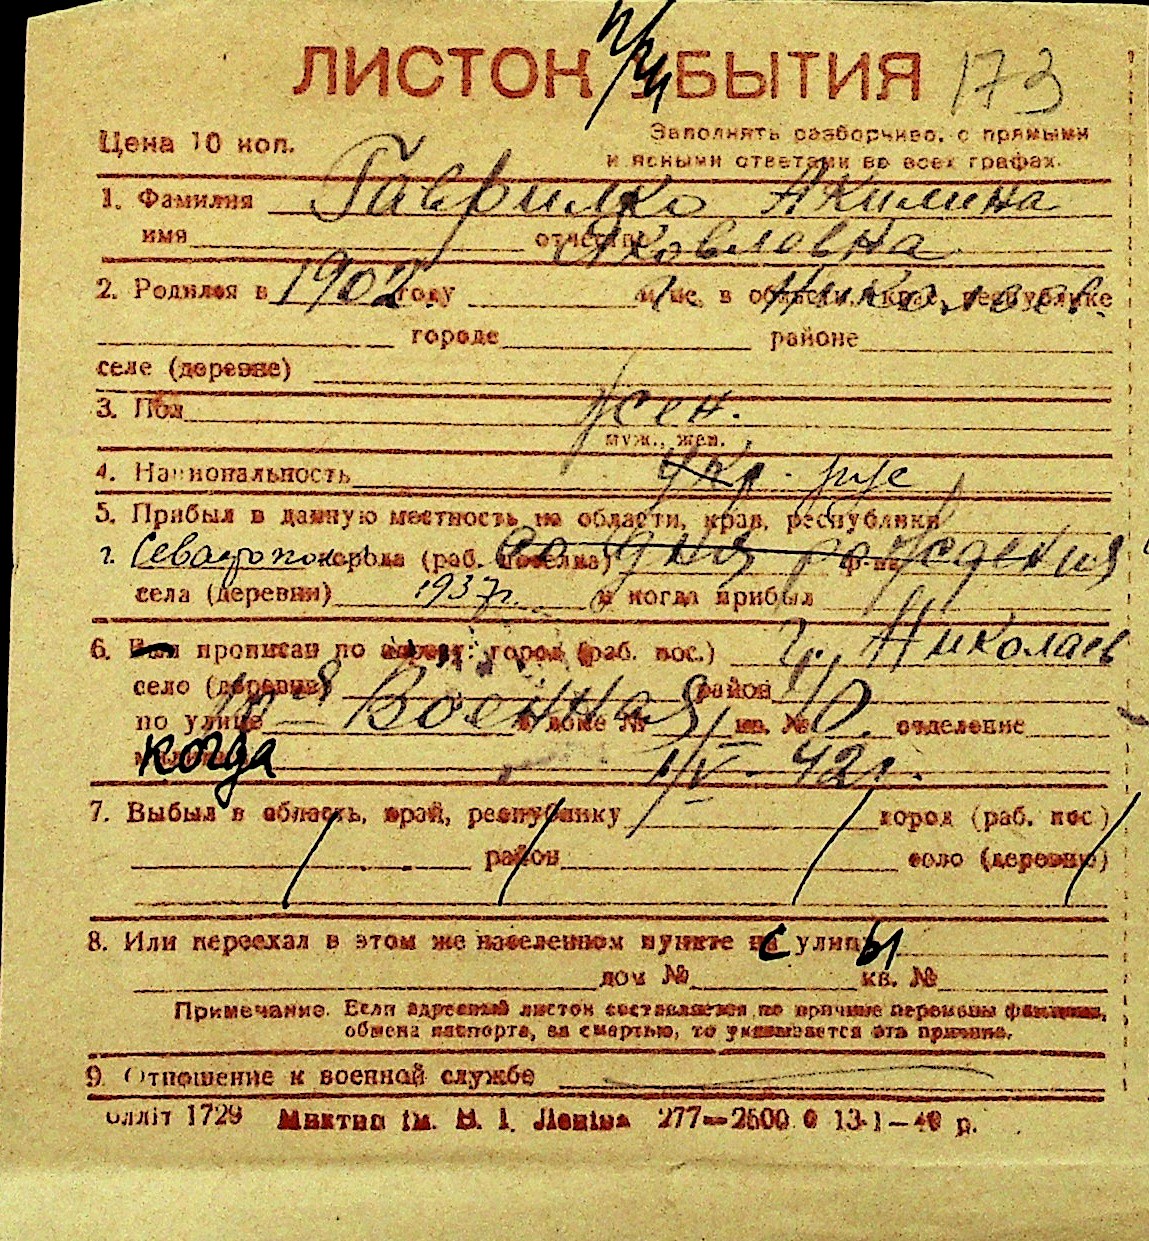 ЛИСТОК УБЫТИЯ 173
Цена 10 коп. Заполнять разборчиво, с прямыми
и ясными ответами во всех графах.
1. Фамилия Гаврилко Акилина
имя отчество Яковлевна
2. Родился в 1902 году м-це, в области, крае, республике г. Николаев.
городе районе
селе (деревне)
3. Пол жен.
муж., жен.
4. Национальность укр. рус
5. Прибыл в данную местность из области, края, республики
г. Севастополь города (раб. поселка) со дня рождения р-на
села (деревни) 1937 г. и когда прибыл
6. Был прописан по адресу: город (раб. пос.) г. Николаев
село (деревня) район
по улице Военная в доме № кв. № 10. отделение
милиции когда 1/V. 42 г.
7. Выбыл в область, край, республику город (раб. пос.)
район село (деревню)
8. Или переехал в этом же населенном пункте на с улицы
дом № кв. №
Примечание. Если адресный листок составляется по причине перемены фамилии,
обмена паспорта, за смертью, то указывается эта причина.
9. Отношение к военной службе
Оллiт 1729 Миктип iм. В. I. Ленiна 277—2500 0 13-1—40 р.